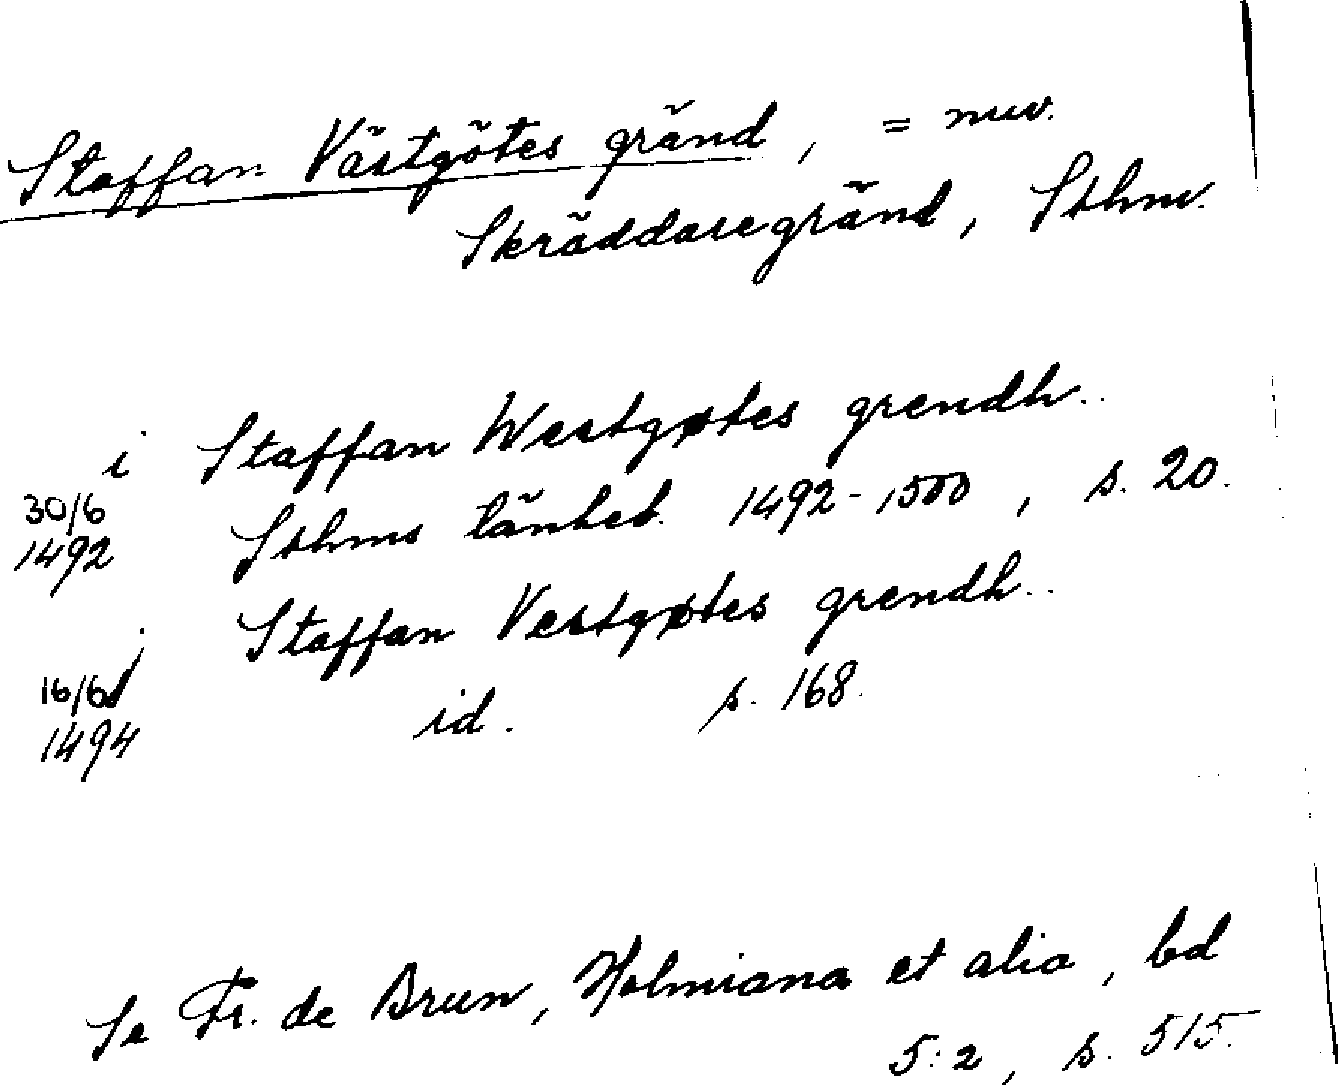 Staffan Västgötes gränd, = nuv.
Skräddaregränd, Sthm.
i Staffan Westgøtes grendh..
30/6
1492 Sthms tänkeb. 1492-1500, s. 20.
i Staffan Vestgøtes grendh..
16/6
1494 id. s. 168.
Se Fr. de Brun, Holmiana et alia, bd
5:2, s. 515.